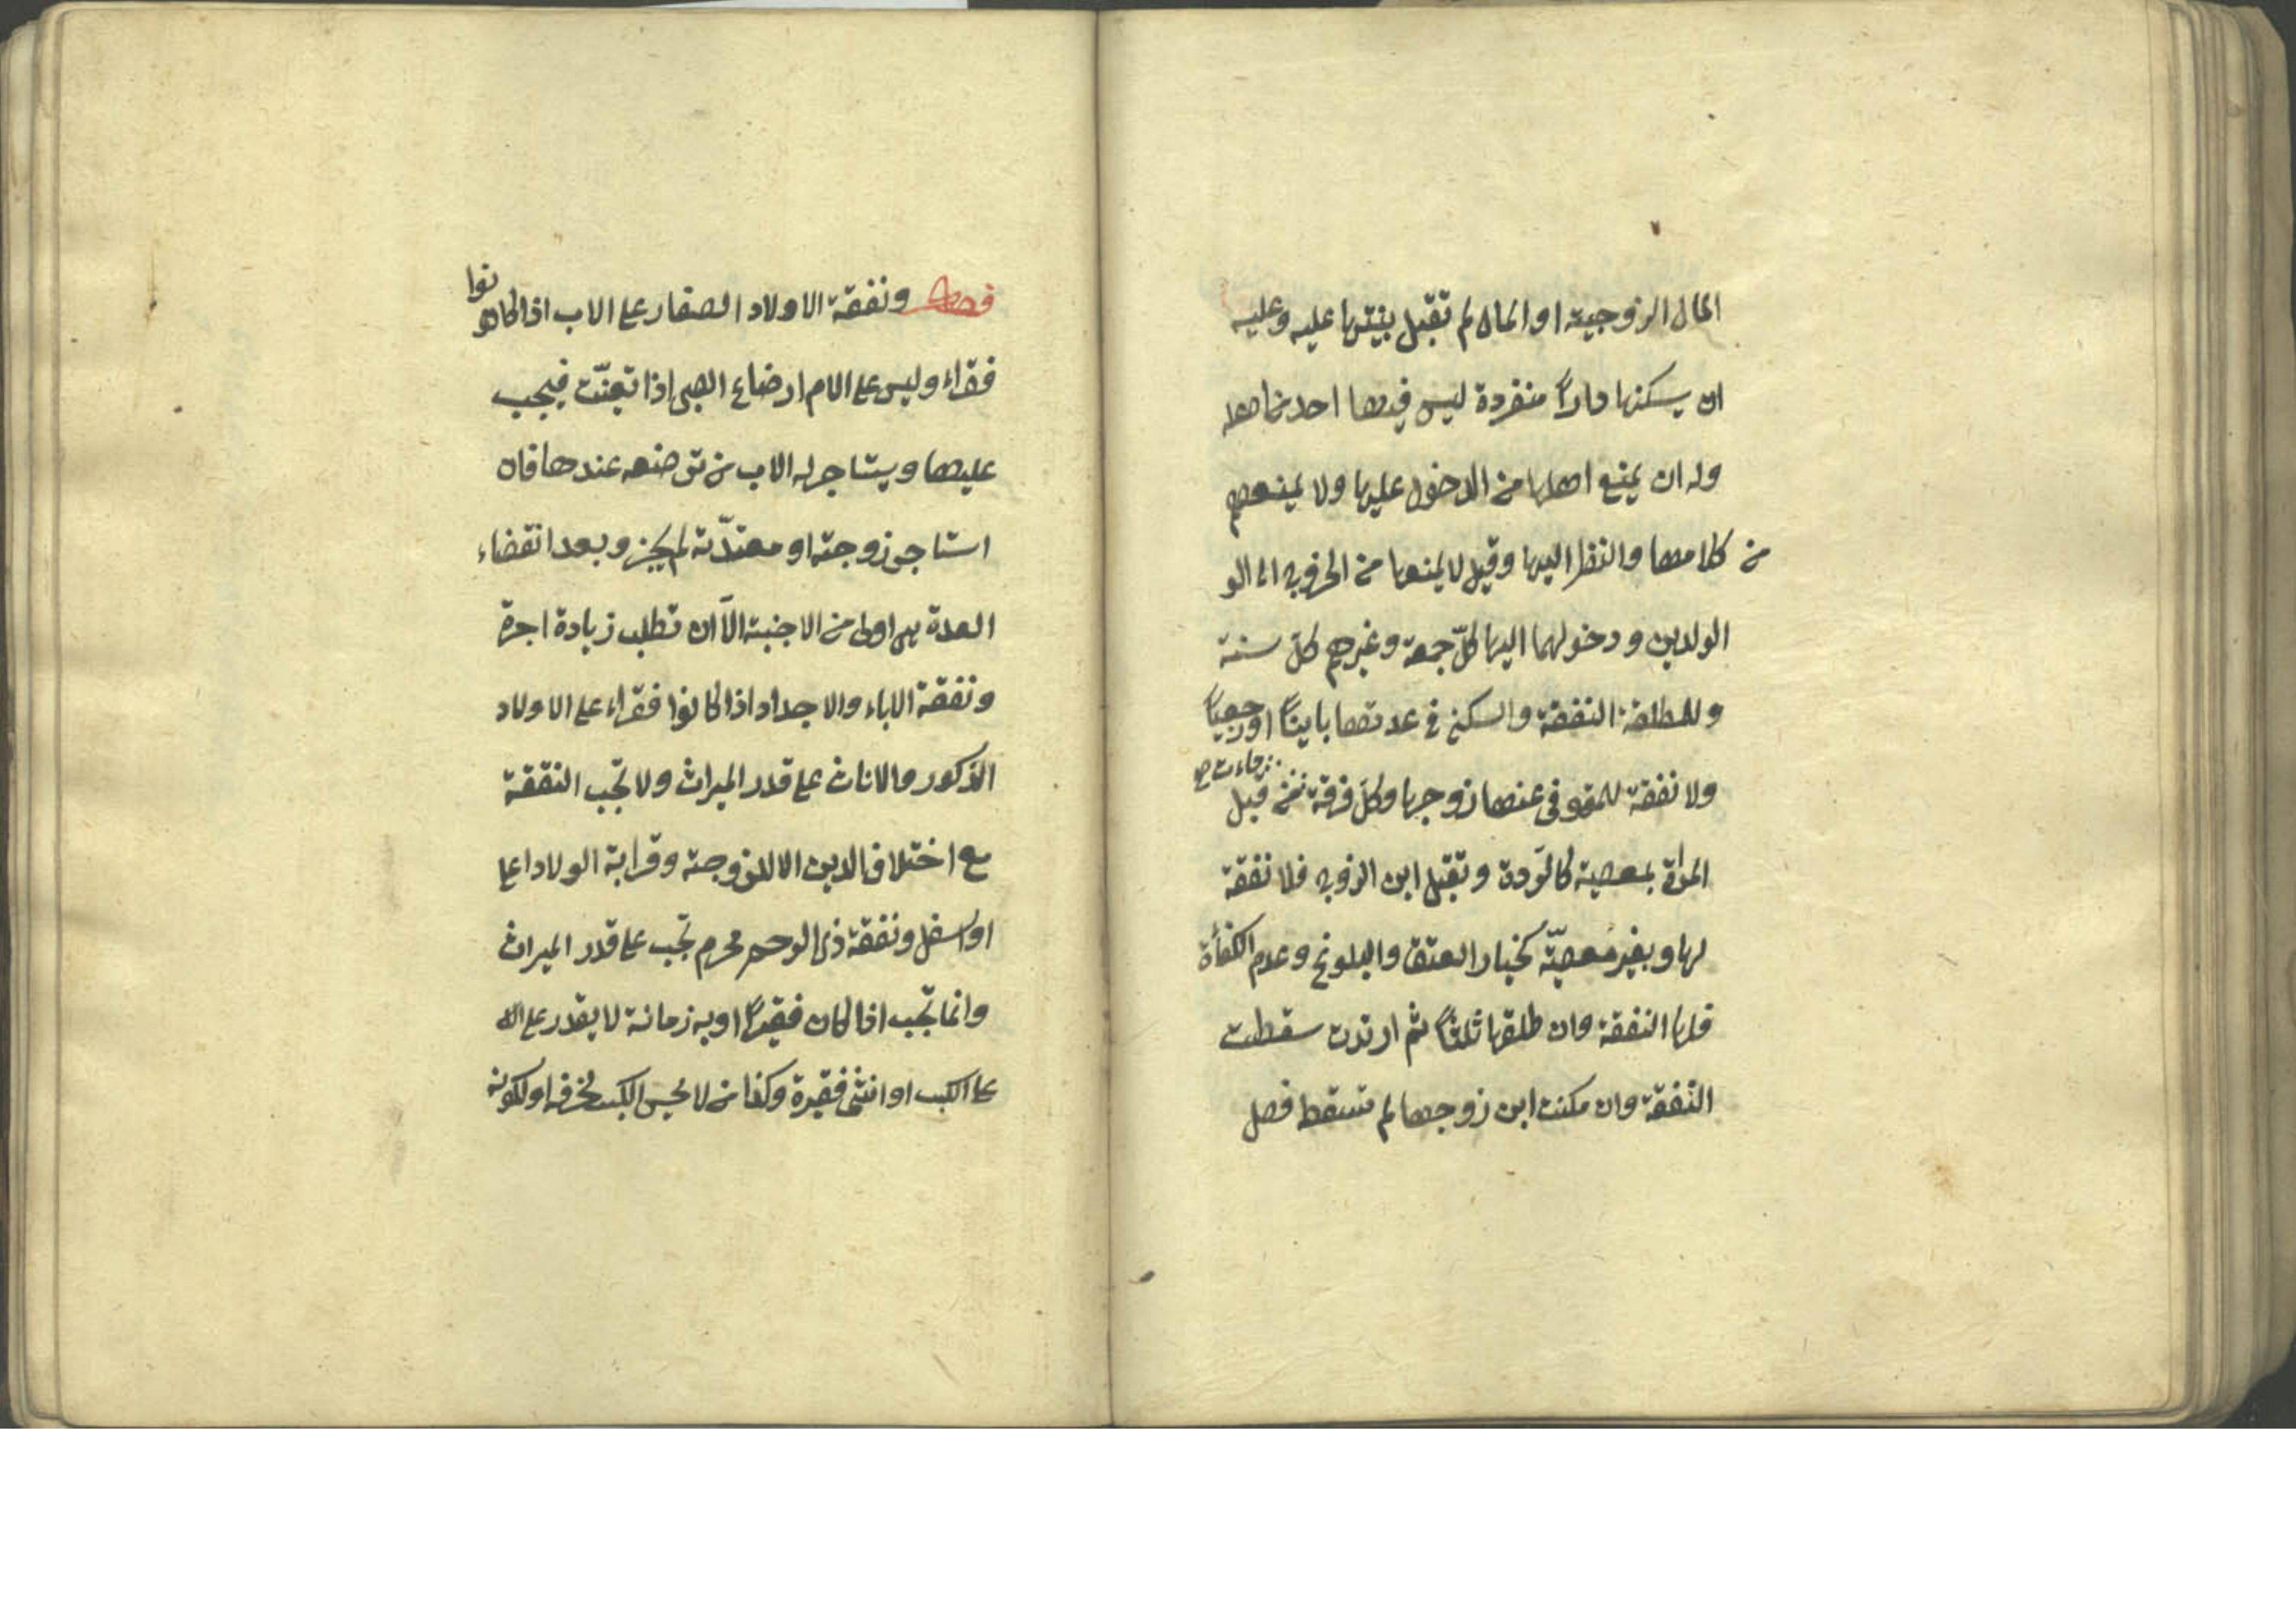 المال الزوجية او المال لم تقبل بينتها عليه وعليه
ان يسكنها دارًا منفردة ليس فيها احد من اهله
وله ان يمنع اهلها من الدخول عليها ولا يمنعهم
من كلامها والنظر اليها وقيل لا يمنعها من الخروج الى الو
الوالدين ودخولهما اليها كلّ جمعة وغيرهم كل سنة
وللمطلقة النفقة والسكنى في عدتها باينًا او رجعيًا
ولا نفقة للمتوفى عنها زوجها وكل فرقة جاءت من قبل
المراة بمعصية كالردة وتقبيل ابن الزوج فلا نفقة
لها وبغير معصيّة كخيار العتق والبلوغ وعدم الكفأة
فلها النفقة وان طلقها ثلثًا ثم ارتدت سقطت
النفقة وان مكنت ابن زوجها لم تسقط فصل
فصل ونفقة الاولاد الصغار على الاب اذا كانوا
فقراء وليس على الام ارضاع الصبى اذا تعينّت فيجب
عليها ويستاجر له الاب من ترضعه عندها فان
استاجر زوجته او معتدّته لم يجز وبعد انقضاء
العدة هي اولى من الاجنبية الاّ ان تطلب زيادة اجرة
ونفقة الاباء والاجداد اذا كانوا فقراء على الاولاد
الذكور والاناث على قدر الميراث ولا تجب النفقة
مع اختلاف الدين الا للزوجة وقرابة الولاد اعلى
او اسفل ونفقة ذى الرحم محرم تجب على قدر الميراث
وانما تجب اذا كان فقيرًا او به زمانة لا يقدر على
على الكسب او انثى فقيرة وكذا من لا يحسن الكسب لخرقه او لكونه